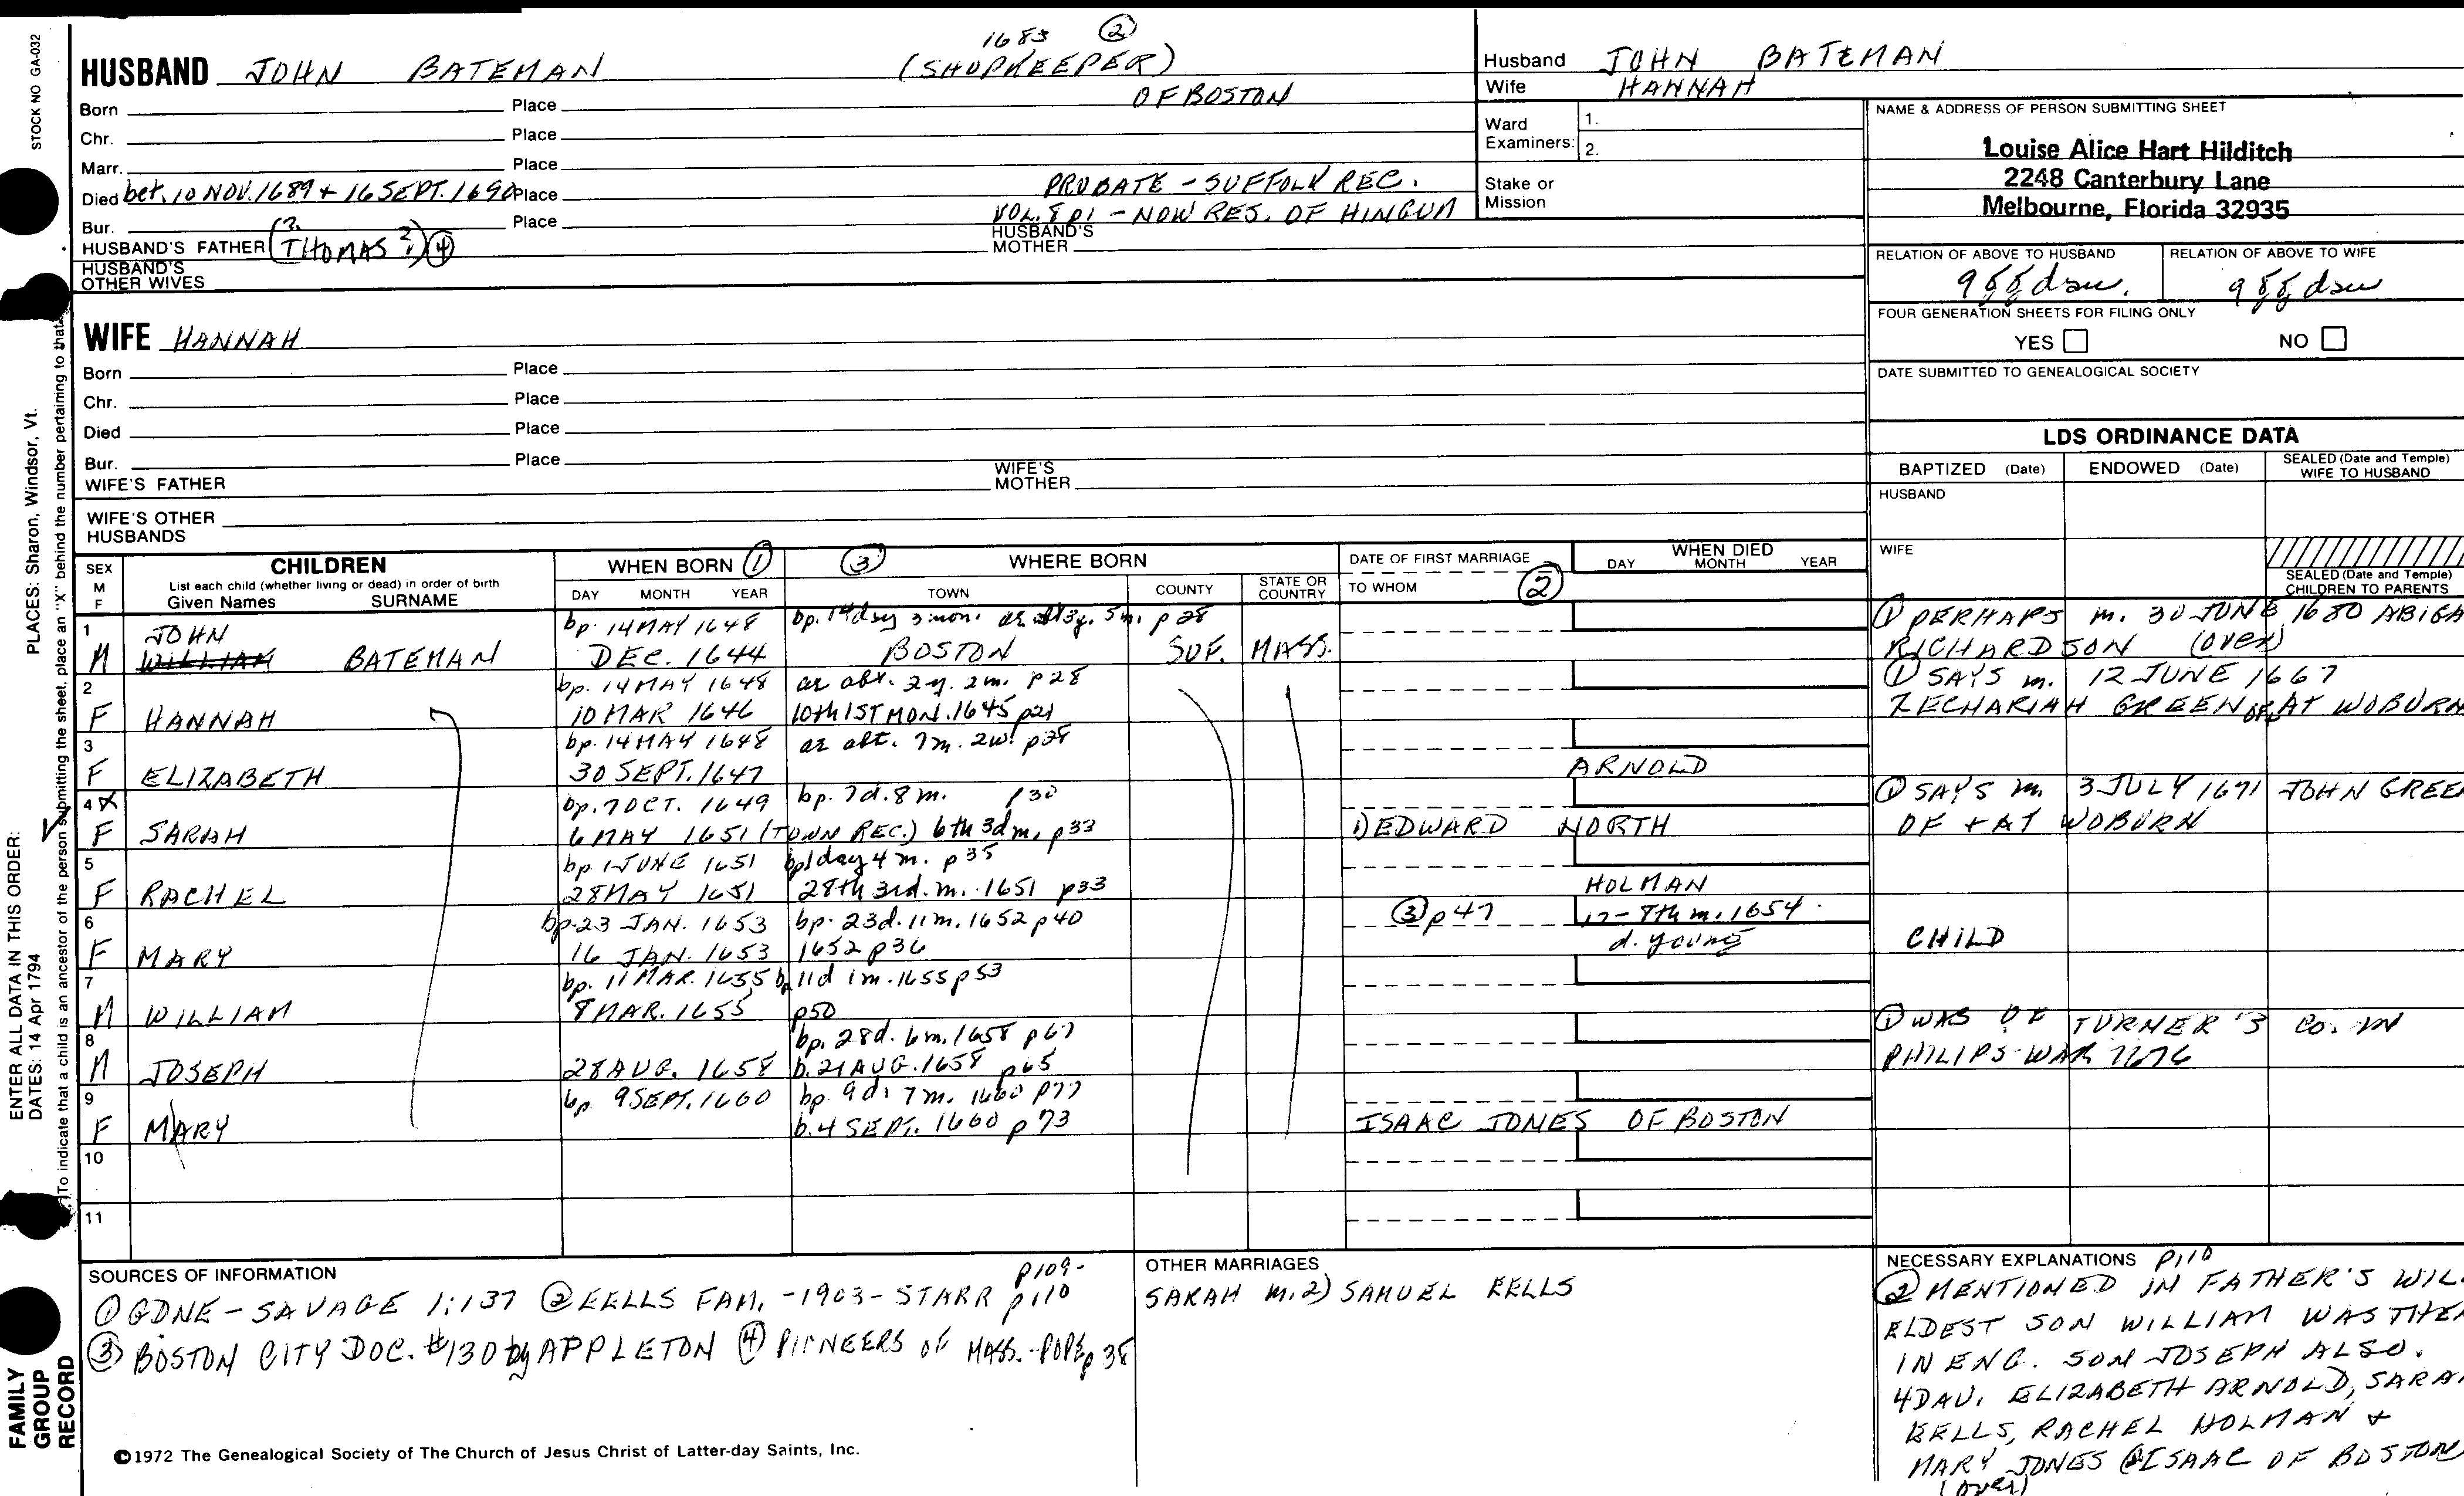 STOCK NO GA-032
1683 ②
HUSBAND JOHN BATEMAN (SHOPKEEPER)
OF BOSTON
Born Place
Chr. Place
Marr. Place
Died bet. 10 NOV. 1689 + 16 SEPT. 1690 Place PROBATE - SUFFOLK REC.
VOL. 8 p1 - NOW RES. OF HINGUM
Bur. Place
HUSBAND'S FATHER (? THOMAS ?) ④ HUSBAND'S MOTHER
HUSBAND'S OTHER WIVES
Husband JOHN BATEMAN
Wife HANNAH
Ward Examiners: 1.
2.
Stake or Mission
NAME & ADDRESS OF PERSON SUBMITTING SHEET
Louise Alice Hart Hilditch
2248 Canterbury Lane
Melbourne, Florida 32935
RELATION OF ABOVE TO HUSBAND RELATION OF ABOVE TO WIFE
9 gg dau. 9 gg dau
FOUR GENERATION SHEETS FOR FILING ONLY
YES NO
DATE SUBMITTED TO GENEALOGICAL SOCIETY
WIFE HANNAH
Born Place
Chr. Place
Died Place
Bur. Place
WIFE'S FATHER WIFE'S MOTHER
WIFE'S OTHER HUSBANDS
LDS ORDINANCE DATA
BAPTIZED (Date) ENDOWED (Date) SEALED (Date and Temple) WIFE TO HUSBAND
HUSBAND
WIFE
SEALED (Date and Temple) CHILDREN TO PARENTS
SEX M F
CHILDREN
List each child (whether living or dead) in order of birth
Given Names SURNAME
WHEN BORN ①
DAY MONTH YEAR
③ WHERE BORN
TOWN COUNTY STATE OR COUNTRY
DATE OF FIRST MARRIAGE
TO WHOM ②
WHEN DIED
DAY MONTH YEAR
1 JOHN bp. 14 MAY 1648 bp. 14 day 3 mon. ae abt 3y. 5m. p 28
M WILLIAM BATEMAN DEC. 1644 BOSTON SUF. MASS.
① PERHAPS m. 30 JUNE 1680 ABIGA
RICHARDSON (over)
2 bp. 14 MAY 1648 ae abt. 2y. 2m. p 28
F HANNAH 10 MAR 1646 10th 1ST MON. 1645 p21
① SAYS m. 12 JUNE 1667
ZECHARIAH GREEN OF + AT WOBURN
3 bp. 14 MAY 1648 ae abt. 7m. 2w. p28
F ELIZABETH 30 SEPT. 1647 ARNOLD
4 X bp. 7 OCT. 1649 bp. 7d. 8 m. p30
F SARAH 6 MAY 1651 (TOWN REC.) 6th 3d m, p33 1) EDWARD NORTH
① SAYS m. 3 JULY 1671 JOHN GREE
OF + AT WOBURN
5 bp 1 JUNE 1651 bp 1 day 4 m. p 35
F RACHEL 28 MAY 1651 28th 3rd. m. 1651 p33 HOLMAN
6 bp. 23 JAN. 1653 bp. 23d. 11 m. 1652 p40 ③ p47 17 - 8th m. 1654
F MARY 16 JAN. 1653 1652 p36 d. young CHILD
7 bp. 11 MAR. 1655 bp 11d 1m. 1655 p53
M WILLIAM 8 MAR. 1655 p50
8 bp. 28d. 6m. 1658 p67
M JOSEPH 28 AUG. 1658 b. 21 AUG. 1658 p65
① WAS OF TURNER'S Co. IN
PHILIPS WAR 1676
9 bp. 9 SEPT. 1660 bp. 9d. 7m. 1660 p77
F MARY b. 4 SEPT. 1660 p 73 ISAAC JONES OF BOSTON
10
11
SOURCES OF INFORMATION
① GDNE - SAVAGE 1:137 ② EELLS FAM. - 1903 - STARR p109-p110
③ BOSTON CITY DOC. #130 by APPLETON ④ PIONEERS OF MASS. - POPE p 38
OTHER MARRIAGES
SARAH m. 2) SAMUEL EELLS
NECESSARY EXPLANATIONS p110
② MENTIONED IN FATHER'S WIL
ELDEST SON WILLIAM WAS THEN
IN ENG. SON JOSEPH ALSO.
4 DAU. ELIZABETH ARNOLD, SARA
EELLS, RACHEL HOLMAN +
MARY JONES ISAAC OF BOSTON
(over)
©1972 The Genealogical Society of The Church of Jesus Christ of Latter-day Saints, Inc.
FAMILY GROUP RECORD
ENTER ALL DATA IN THIS ORDER:
DATES: 14 Apr 1794
PLACES: Sharon, Windsor, Vt.
To indicate that a child is an ancestor of the person submitting the sheet, place an "X" behind the number pertaining to that